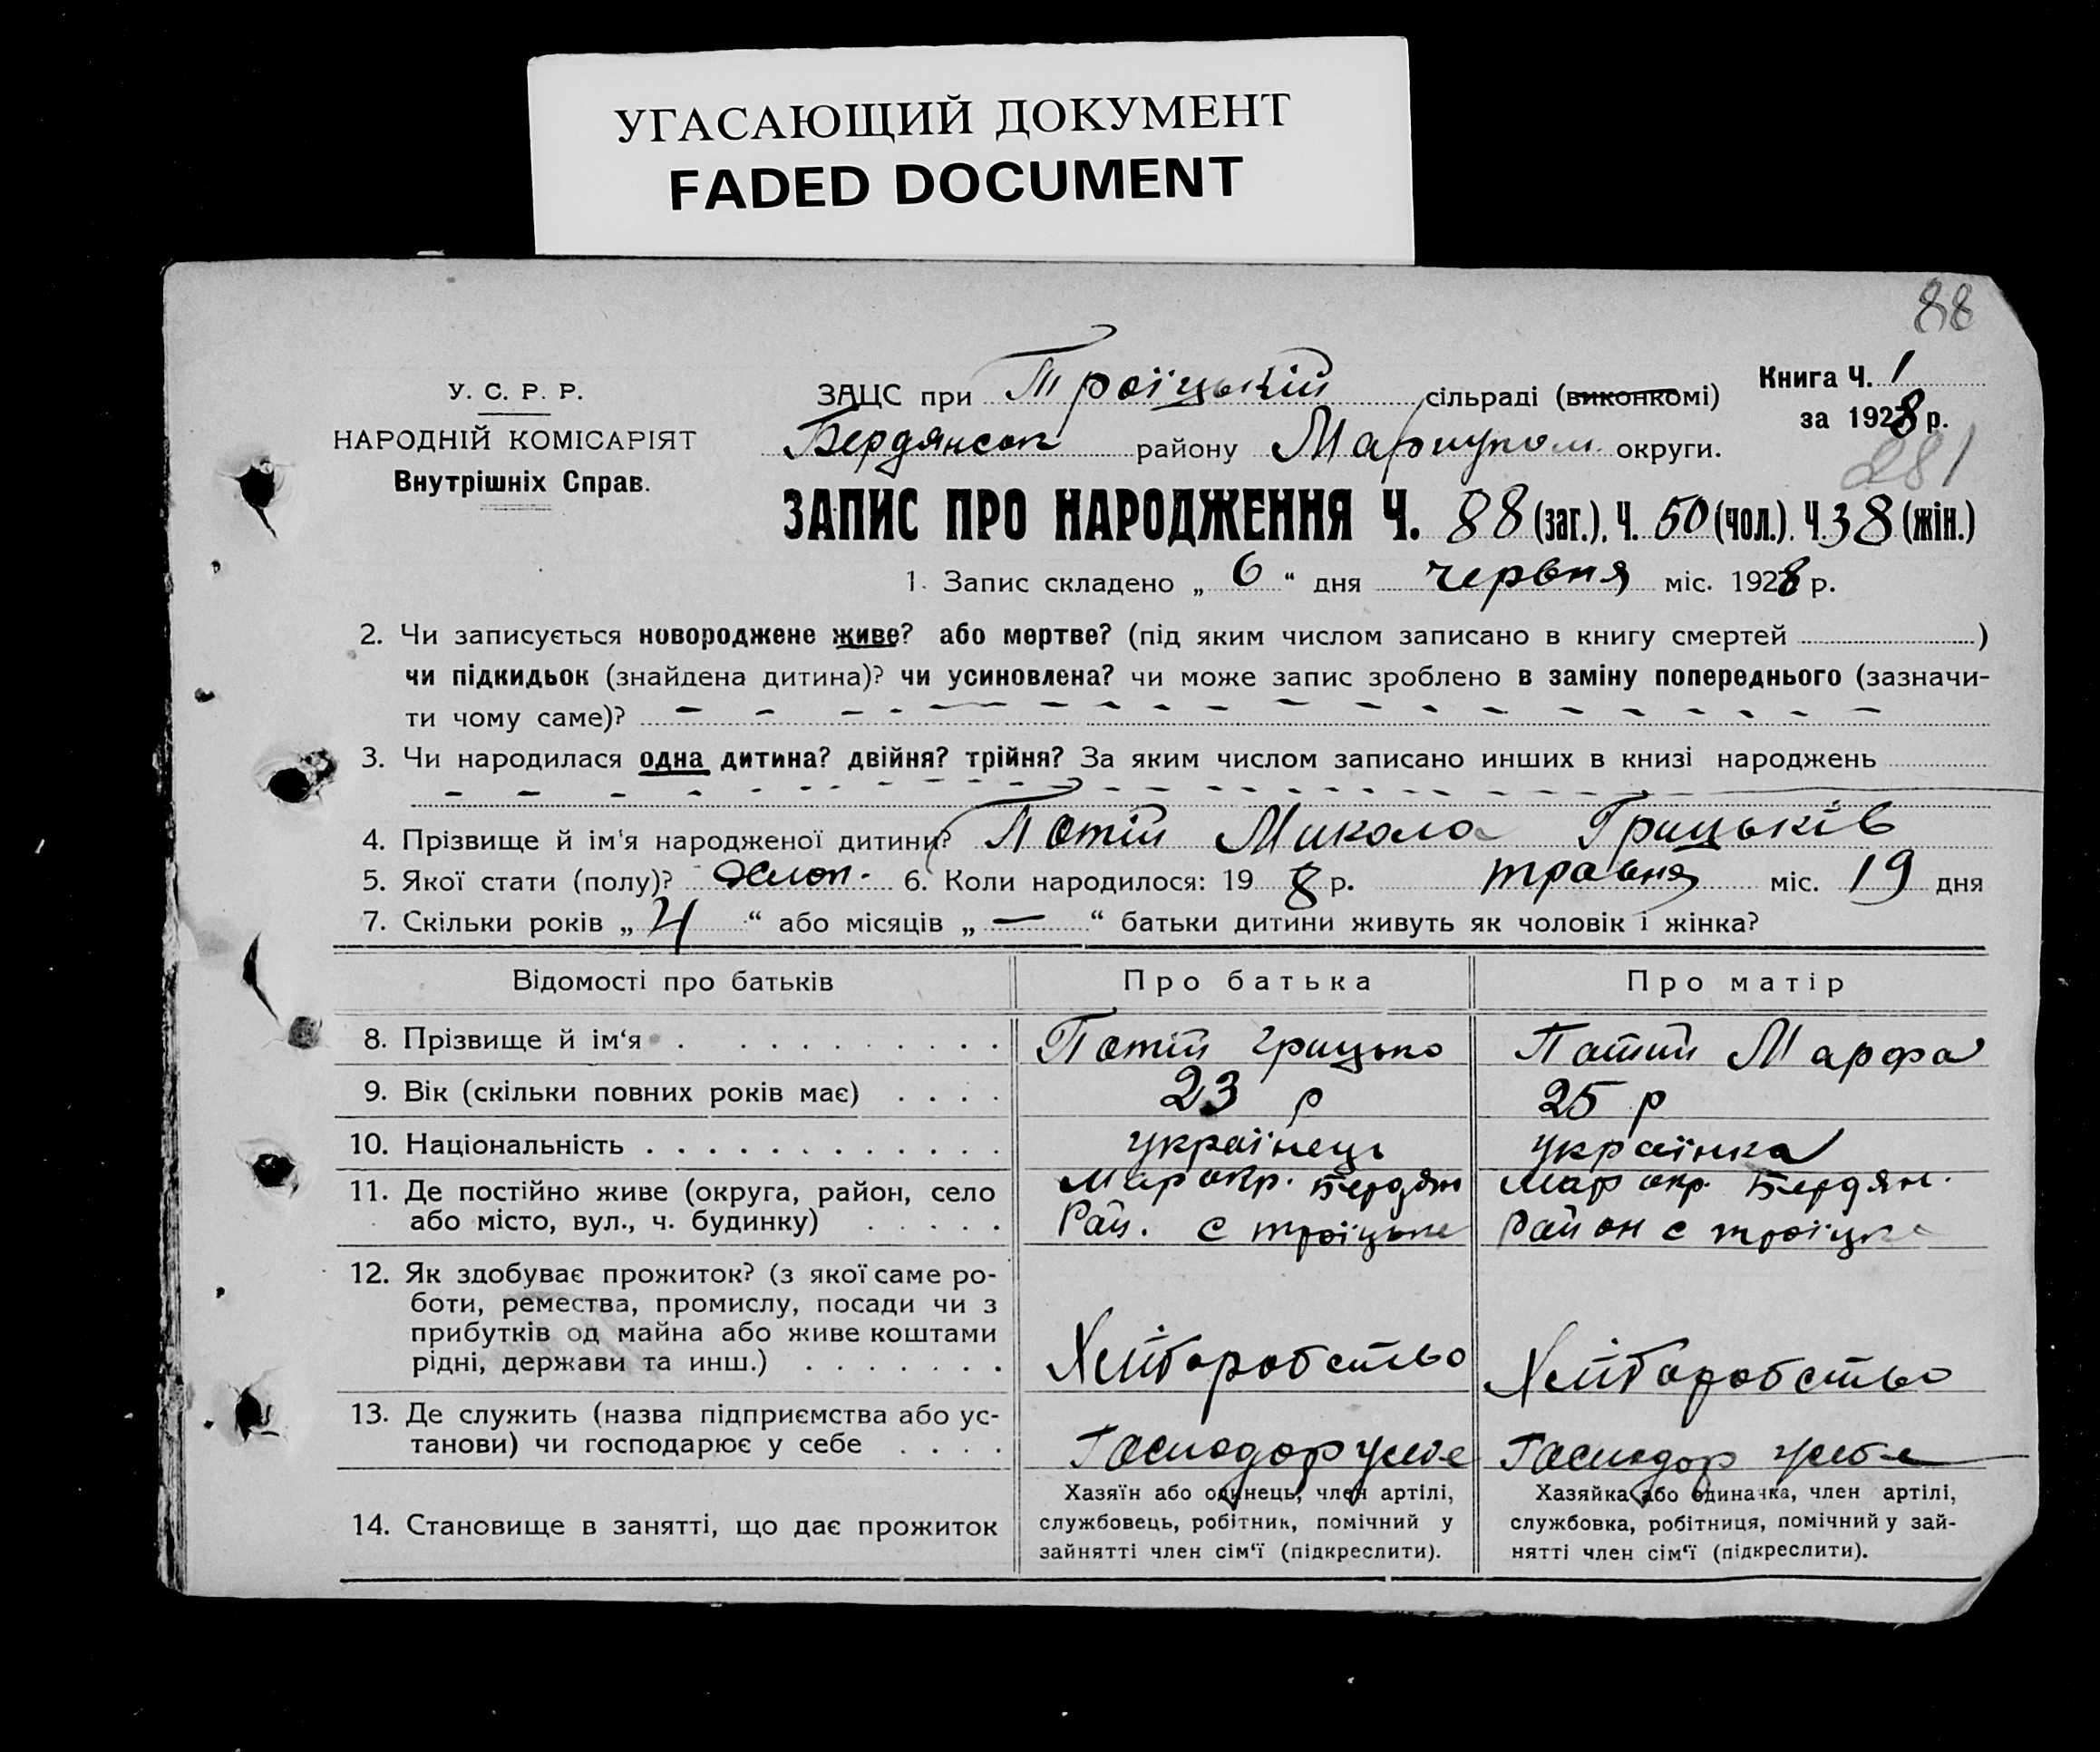 УГАСАЮЩИЙ ДОКУМЕНТ
FADED DOCUMENT
88
У. С. Р. Р.
НАРОДНІЙ КОМІСАРІЯТ
Внутрішніх Справ.
ЗАЦС при Троїцькій сільраді (виконкомі)
Книга Ч. 1
за 1928 р.
Бердянськ району Маріупол. округи.
281
ЗАПИС ПРО НАРОДЖЕННЯ Ч. 88 (заг.), Ч. 50 (чол.). Ч. 38 (жін.)
1. Запис складено „ 6 “ дня червня міс. 1928 р.
2. Чи записується новороджене живе? або мертве? (під яким числом записано в книгу смертей )
чи підкидьок (знайдена дитина)? чи усиновлена? чи може запис зроблено в заміну попереднього (зазначи-
ти чому саме)? – – – – – – – – – – – – – – – –
3. Чи народилася одна дитина? двійня? трійня? За яким числом записано инших в книзі народжень
– – – – – – – – – – – – – – – –
4. Прізвище й ім'я народженої дитини? Потій Микола Грицьків
5. Якої стати (полу)? 6. Коли народилося: 19 8 р. травня міс. 19 дня
7. Скільки років „ 4 “ або місяців „ — “ батьки дитини живуть як чоловік і жінка?
Відомості про батьків Про батька Про матір
8. Прізвище й ім‘я . . . . . . . . . . Потій Грицько Потий Марфа
9. Вік (скільки повних років має) . . . . 23 р 25 р
10. Національність . . . . . . . . . . . . українець українка
11. Де постійно живе (округа, район, село
або місто, вул., ч. будинку) . . . . .
Мар окр. Бердян
Рай. с троїцьке
Мар окр. Бердян.
Район с троїцке
12. Як здобуває прожиток? (з якої саме ро-
боти, ремества, промислу, посади чи з
прибутків од майна або живе коштами
рідні, держави та инш.) . . . . . . .
Хліборобство
Хліборобство
13. Де служить (назва підприємства або ус-
танови) чи господарює у себе . . . .
Господор у себе
Господор у себе
14. Становище в занятті, що дає прожиток
Хазяїн або одинець, член артілі,
службовець, робітник, помічний у
зайнятті член сім‘ї (підкреслити).
Хазяйка або одиначка, член артілі,
службовка, робітниця, помічний у зай-
нятті член сім‘ї (підкреслити).